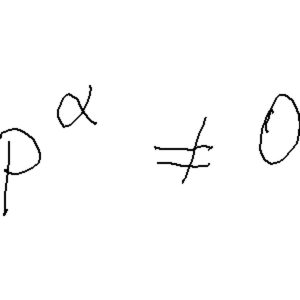 p^α ≠ 0